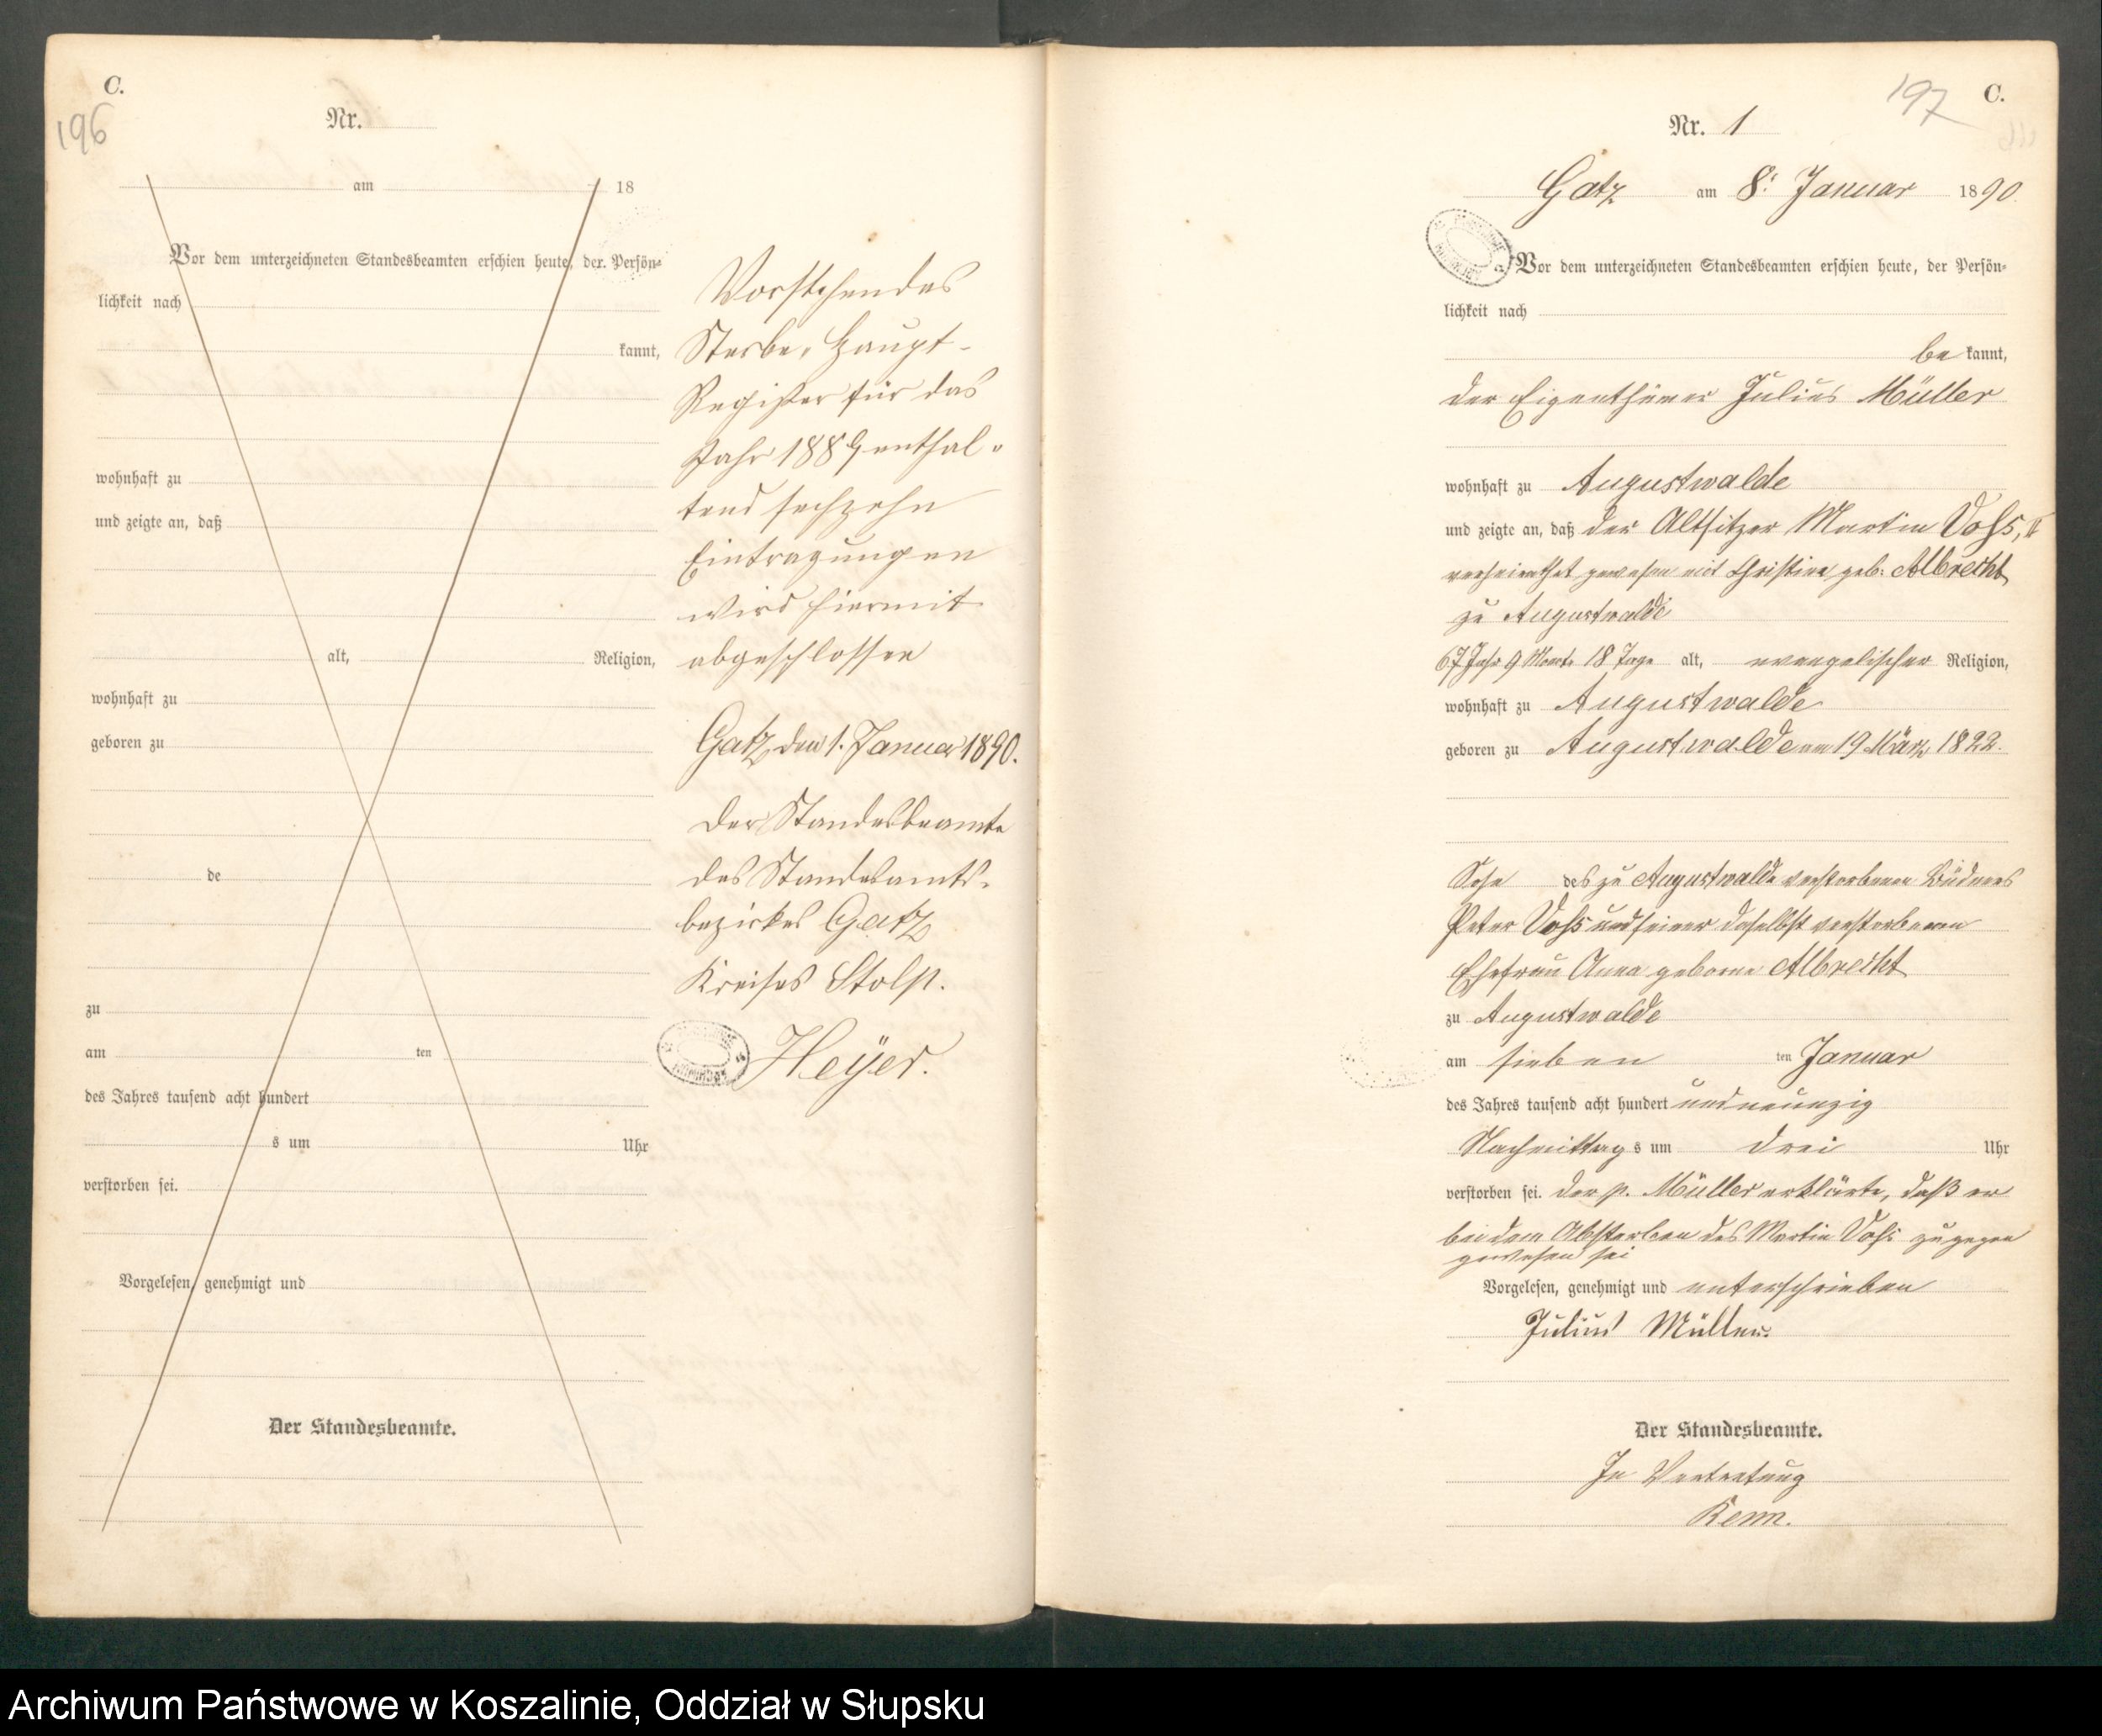 C.
196
Nr.
am 18
Vor dem unterzeichneten Standesbeamten erschien heute, der Persön-
lichkeit nach
kannt,
wohnhaft zu
und zeigte an, daß
alt, Religion,
wohnhaft zu
geboren zu
de
zu
am ten
des Jahres tausend acht hundert
s um Uhr
verstorben sei.
Vorgelesen, genehmigt und
Der Standesbeamte.
Vorstehendes
Sterbe-Haupt-
Register für das
Jahr 1889 enthal-
tend sechzehn
Eintragungen
wird hiermit
abgeschlossen
Gatz, den 1. Januar 1890.
Der Standesbeamte
des Standesamts-
bezirkes Gatz
Kreises Stolp.
Heyer.
197
C.
Nr. 1
Gatz am 8. Januar 1890.
Vor dem unterzeichneten Standesbeamten erschien heute, der Persön-
lichkeit nach
be kannt,
der Eigenthümer Julius Müller
wohnhaft zu Augustwalde
und zeigte an, daß der Altsitzer Martin Voß, II
verheirathet gewesen mit Christine geb. Albrecht
zu Augustwalde
67 Jahr 9 Monate 18 Tage alt, evangelischer Religion,
wohnhaft zu Augustwalde
geboren zu Augustwalde am 19 März 1822.
Sohn des zu Augustwalde verstorbenen Büdners
Peter Voß und seiner daselbst verstorbenen
Ehefrau Anna geborne Albrecht
zu Augustwalde
am sieben ten Januar
des Jahres tausend acht hundert und neunzig
Nachmittag s um drei Uhr
verstorben sei. Der p. Müller erklärte, daß er
bei dem Absterben des Martin Voß zugegen
gewesen sei
Vorgelesen, genehmigt und unterschrieben
Julius Müller.
Der Standesbeamte.
In Vertretung
Kemn.
Archiwum Państwowe w Koszalinie, Oddział w Słupsku